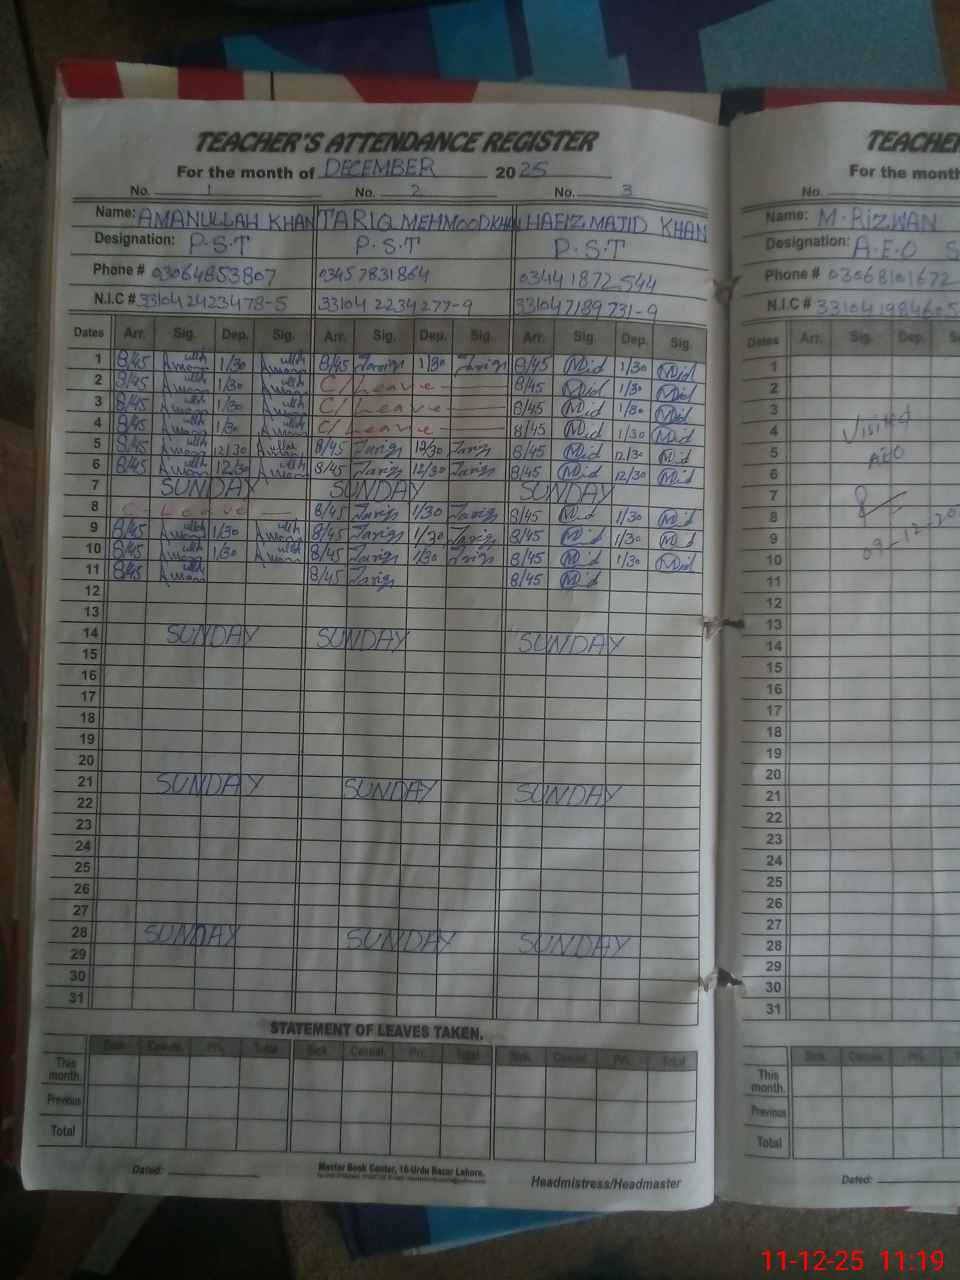 TEACHER'S ATTENDANCE REGISTER
For the month of DECEMBER 2025
No. 1 No. 2 No. 3
Name: AMANULLAH KHAN TARIQ MEHMOOD KHAN HAFIZ MAJID KHAN
Designation: P.S.T P.S.T P.S.T
Phone # 03064853807 03457831864 03441872544
N.I.C # 33104 2423478-5 33104 2234277-9 33104 7189731-9
Dates Arr. Sig. Dep. Sig. Arr. Sig. Dep. Sig. Arr. Sig. Dep. Sig.
1 8/45 Aman ullah 1/30 Aman ullah 8/45 Tariq 1/30 Tariq 8/45 Mjd 1/30 Mjd
2 8/45 Aman ullah 1/30 Aman ullah C/Leave 8/45 Mjd 1/30 Mjd
3 8/45 Aman ullah 1/30 Aman ullah C/Leave 8/45 Mjd 1/30 Mjd
4 8/45 Aman ullah 1/30 Aman ullah C/Leave 8/45 Mjd 1/30 Mjd
5 8/45 Aman ullah 12/30 Aman ullah 8/45 Tariq 12/30 Tariq 8/45 Mjd 12/30 Mjd
6 8/45 Aman ullah 12/30 Aman ullah 8/45 Tariq 12/30 Tariq 8/45 Mjd 12/30 Mjd
7 SUNDAY SUNDAY SUNDAY
8 C-Leave 8/45 Tariq 1/30 Tariq 8/45 Mjd 1/30 Mjd
9 8/45 Aman ullah 1/30 Aman ullah 8/45 Tariq 1/30 Tariq 8/45 Mjd 1/30 Mjd
10 8/45 Aman ullah 1/30 Aman ullah 8/45 Tariq 1/30 Tariq 8/45 Mjd 1/30 Mjd
11 8/45 Aman ullah 8/45 Tariq 8/45 Mjd
12
13
14 SUNDAY SUNDAY SUNDAY
15
16
17
18
19
20
21 SUNDAY SUNDAY SUNDAY
22
23
24
25
26
27
28 SUNDAY SUNDAY SUNDAY
29
30
31
STATEMENT OF LEAVES TAKEN.
Sick. Casual. Pri. Total Sick. Casual. Pri. Total Sick. Casual. Pri. Total
This month.
Previous
Total
Dated:
Master Book Center, 16-Urdu Bazar Lahore.
Headmistress/Headmaster
TEACHER
For the month
No.
Name: M.RIZWAN
Designation: A.E.O
Phone # 03068101672
N.I.C # 331041984605
Dates Arr. Sig. Dep.
1
2
3
4 Visited
5 AEO
6
7
8
9 09-12-20
10
11
12
13
14
15
16
17
18
19
20
21
22
23
24
25
26
27
28
29
30
31
Sick. Casual. Pri.
This month.
Previous
Total
Dated:
11-12-25 11:19